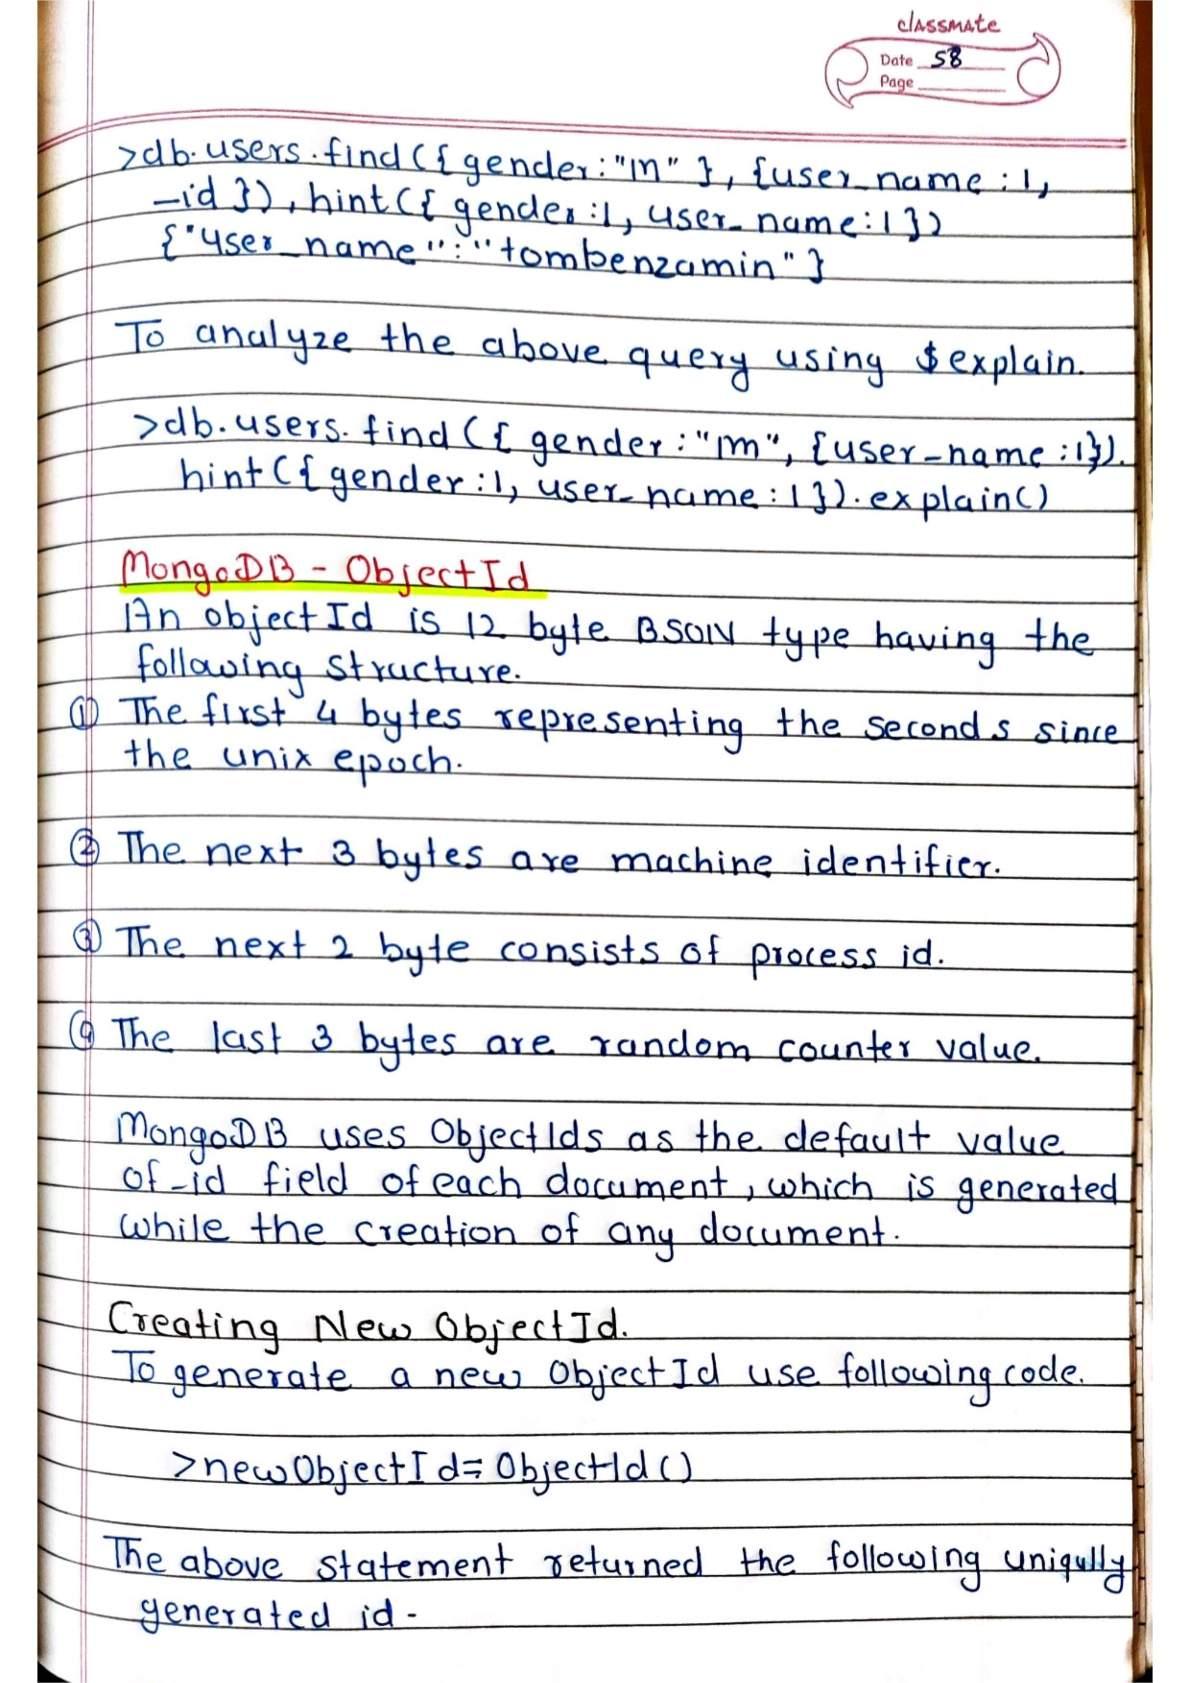 classmate
Date 58
Page
>db.users.find({gender:"M"}, {user_name:1,
_id}), hint({gender:1, user_name:1})
{"user_name":"tombenzamin"}
To analyze the above query using $explain.
>db.users.find({gender:"M", {user_name:1}).
hint({gender:1, user_name:1}).explain()
MongoDB - ObjectId
An objectId is 12 byte BSON type having the
following structure.
① The first 4 bytes representing the seconds since
the unix epoch.
② The next 3 bytes are machine identifier.
③ The next 2 byte consists of process id.
④ The last 3 bytes are random counter value.
MongoDB uses ObjectIds as the default value
of _id field of each document, which is generated
while the creation of any document.
Creating New ObjectId.
To generate a new ObjectId use following code.
>newObjectId=ObjectId()
The above statement returned the following uniqully
generated id -